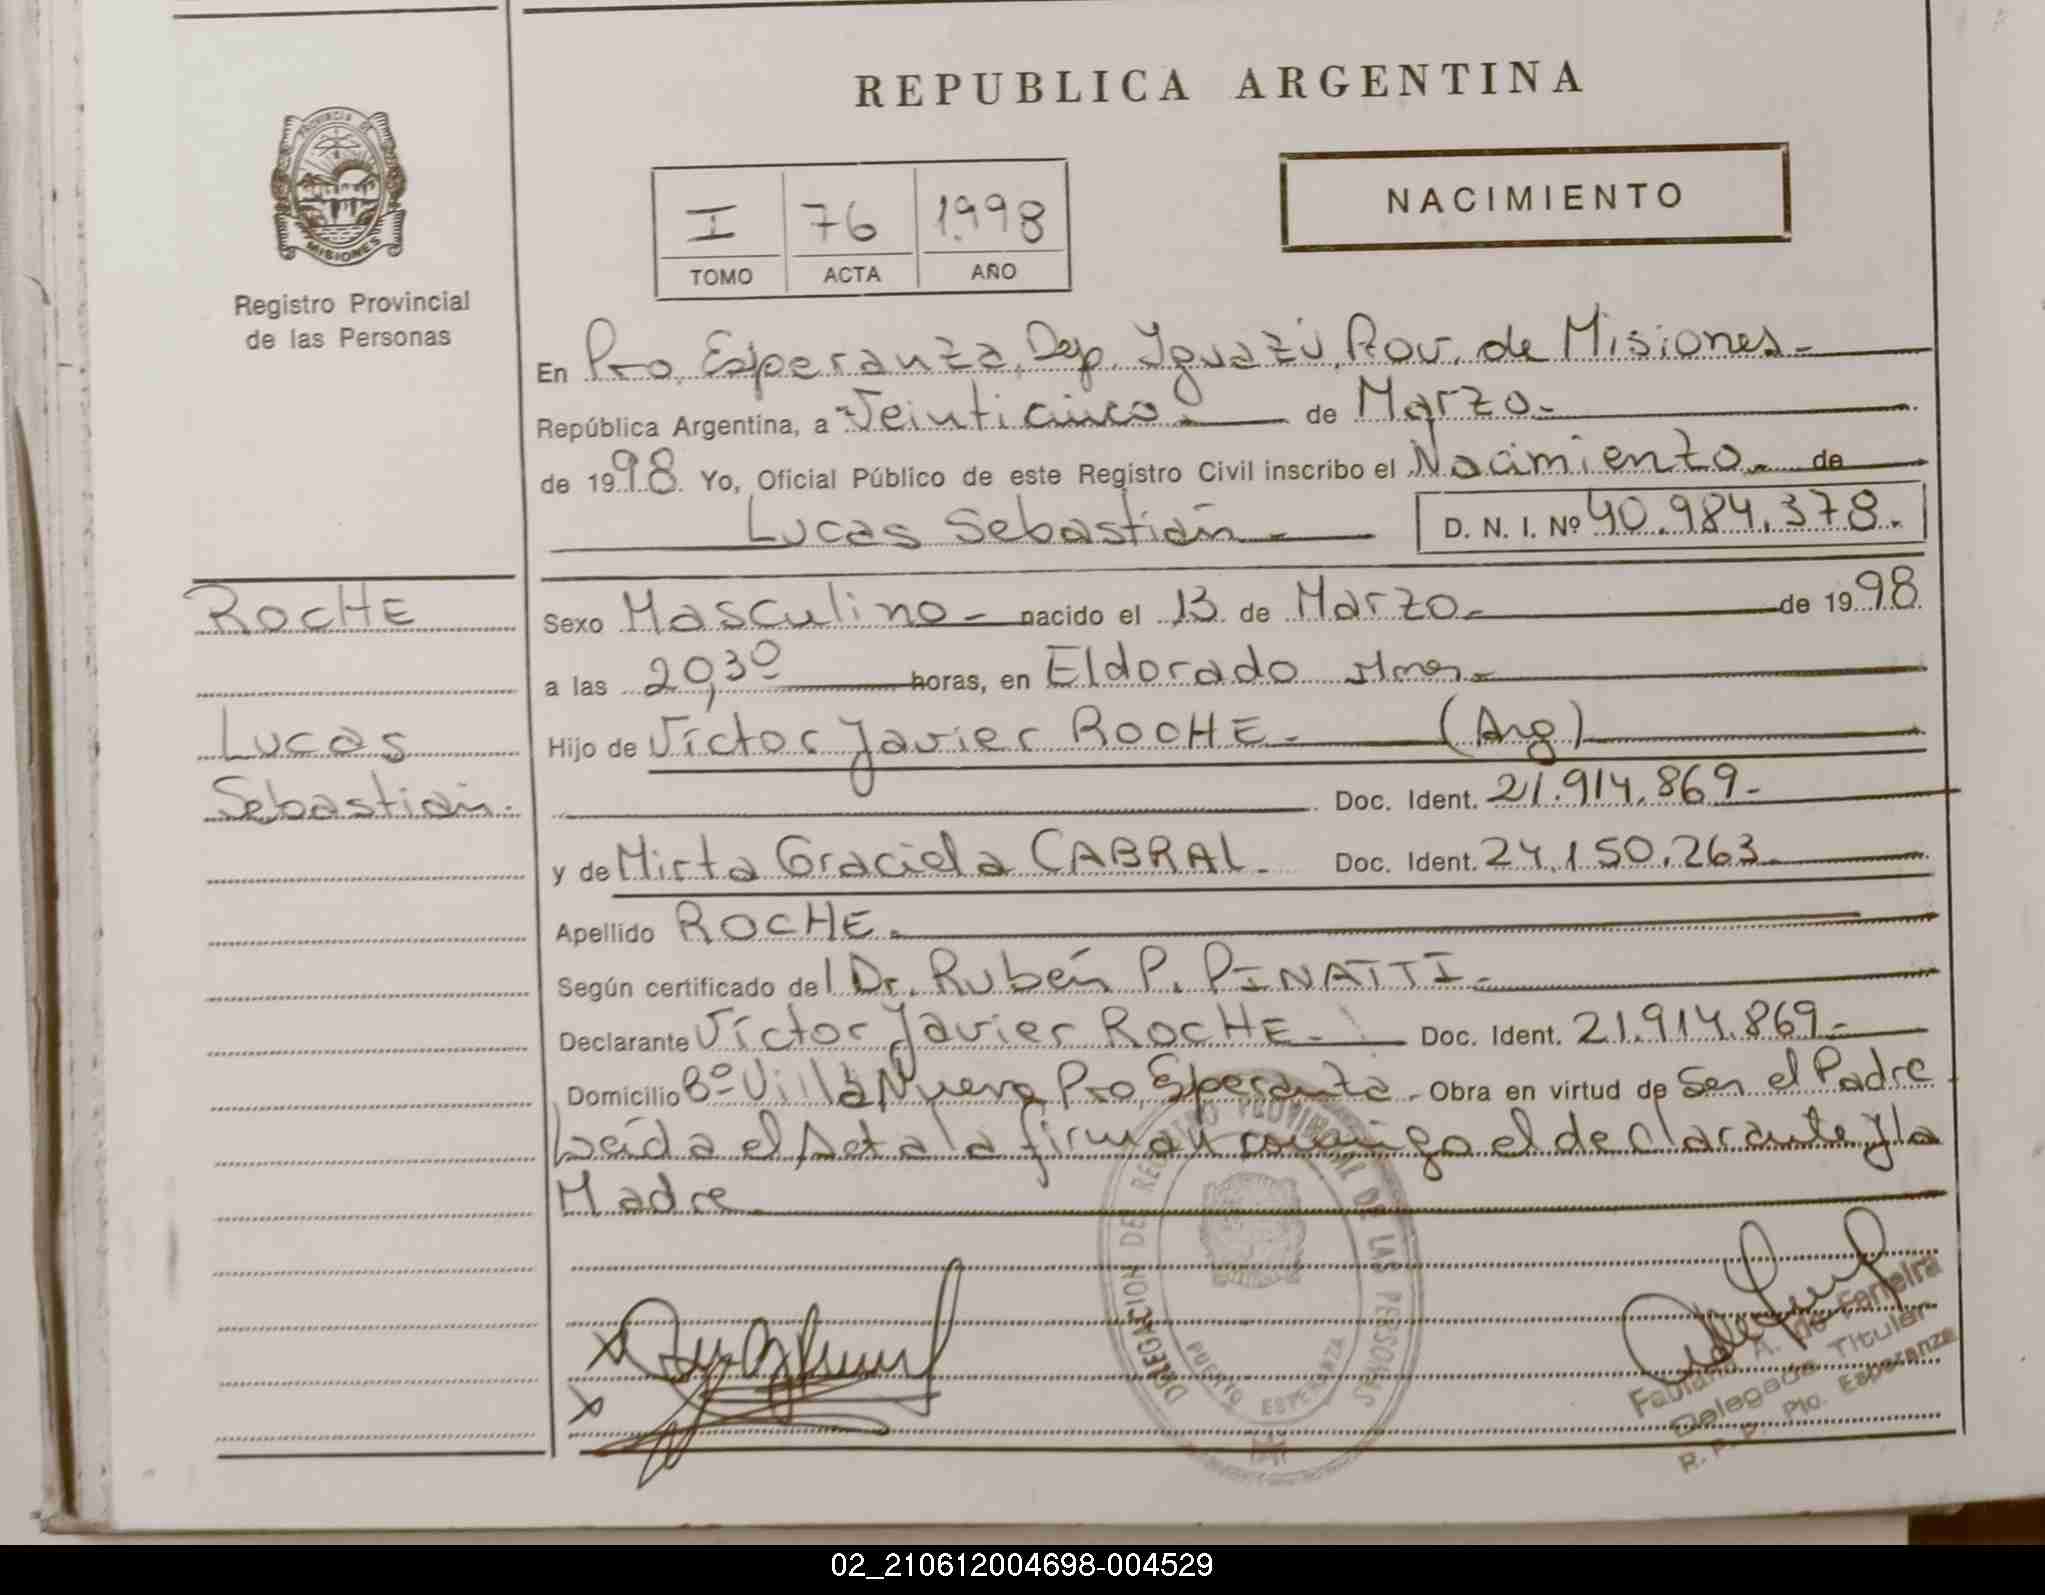 REPUBLICA ARGENTINA
NACIMIENTO
PROVINCIA DE
MISIONES
Registro Provincial
de las Personas
I 76 1.998
TOMO ACTA AÑO
En Pto. Esperanza, Dep. Iguazú, Prov. de Misiones.-
República Argentina, a Veinticinco.- de Marzo.-
de 1998. Yo, Oficial Público de este Registro Civil inscribo el Nacimiento.- de
Lucas Sebastián.- D. N. I. Nº 40.984.378.
ROCHE
Lucas
Sebastián.
Sexo Masculino.- nacido el 13 de Marzo.- de 1998.
a las 20,30 horas, en Eldorado Mnes.-
Hijo de Víctor Javier ROCHE.- (Arg)
Doc. Ident. 21.914.869.-
y de Mirta Graciela CABRAL.- Doc. Ident. 24.150.263.-
Apellido ROCHE.
Según certificado del Dr. Rubén P. PINATTI.-
Declarante Víctor Javier ROCHE.- Doc. Ident. 21.914.869.-
Domicilio Bº Villa Nueva Pto. Esperanza.- Obra en virtud de Ser el Padre
Leída el Acta la firman conmigo el declarante y la
Madre
DELEGACION DEL REGISTRO PROVINCIAL DE LAS PERSONAS
PUERTO ESPERANZA
Fabiana A. de Ferreira
Delegada Titular
R. P. P. Pto. Esperanza
02_210612004698-004529